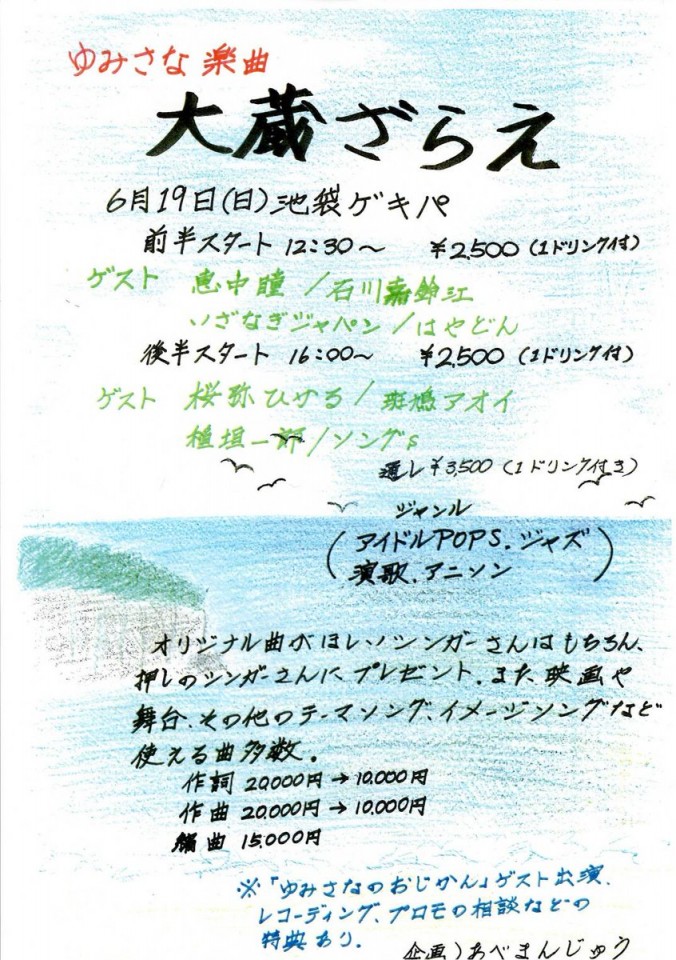 ゆみさな楽曲
大蔵ざらえ
6月19日(日)池袋ゲキバ
前半スタート 12:30～ ¥2,500(1ドリンク付)
ゲスト 恵中瞳/石川嘉錦江
いざなぎジャパン/はやどん
後半スタート 16:00～ ¥2,500(1ドリンク付)
ゲスト 桜弥ひかる/斑鳩アオイ
植垣一郎/ソングs
通し¥3,500(1ドリンク付き)
ジャンル
(アイドルPOPS.ジャズ
演歌.アニソン)
オリジナル曲がほしいシンガーさんはもちろん、
押しのシンガーさんにプレゼント.また、映画や
舞台.その他のテーマソング、イメージソングなど
使える曲多数.
作詞 20,000円→10,000円
作曲 20,000円→10,000円
編曲 15,000円
※「ゆみさなのおじかん」ゲスト出演.
レコーディング、プロモの相談などの
特典あり.
企画)あべまんじゅう